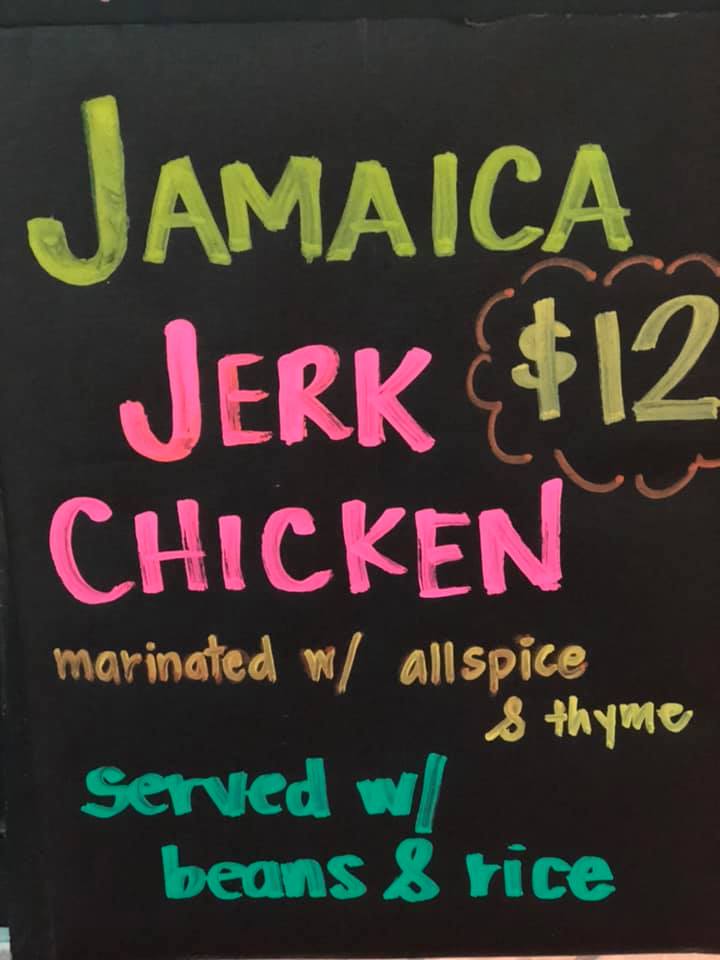 JAMAICA
JERK
$12
CHICKEN
marinated w/ allspice
& thyme
served w/
beans & rice